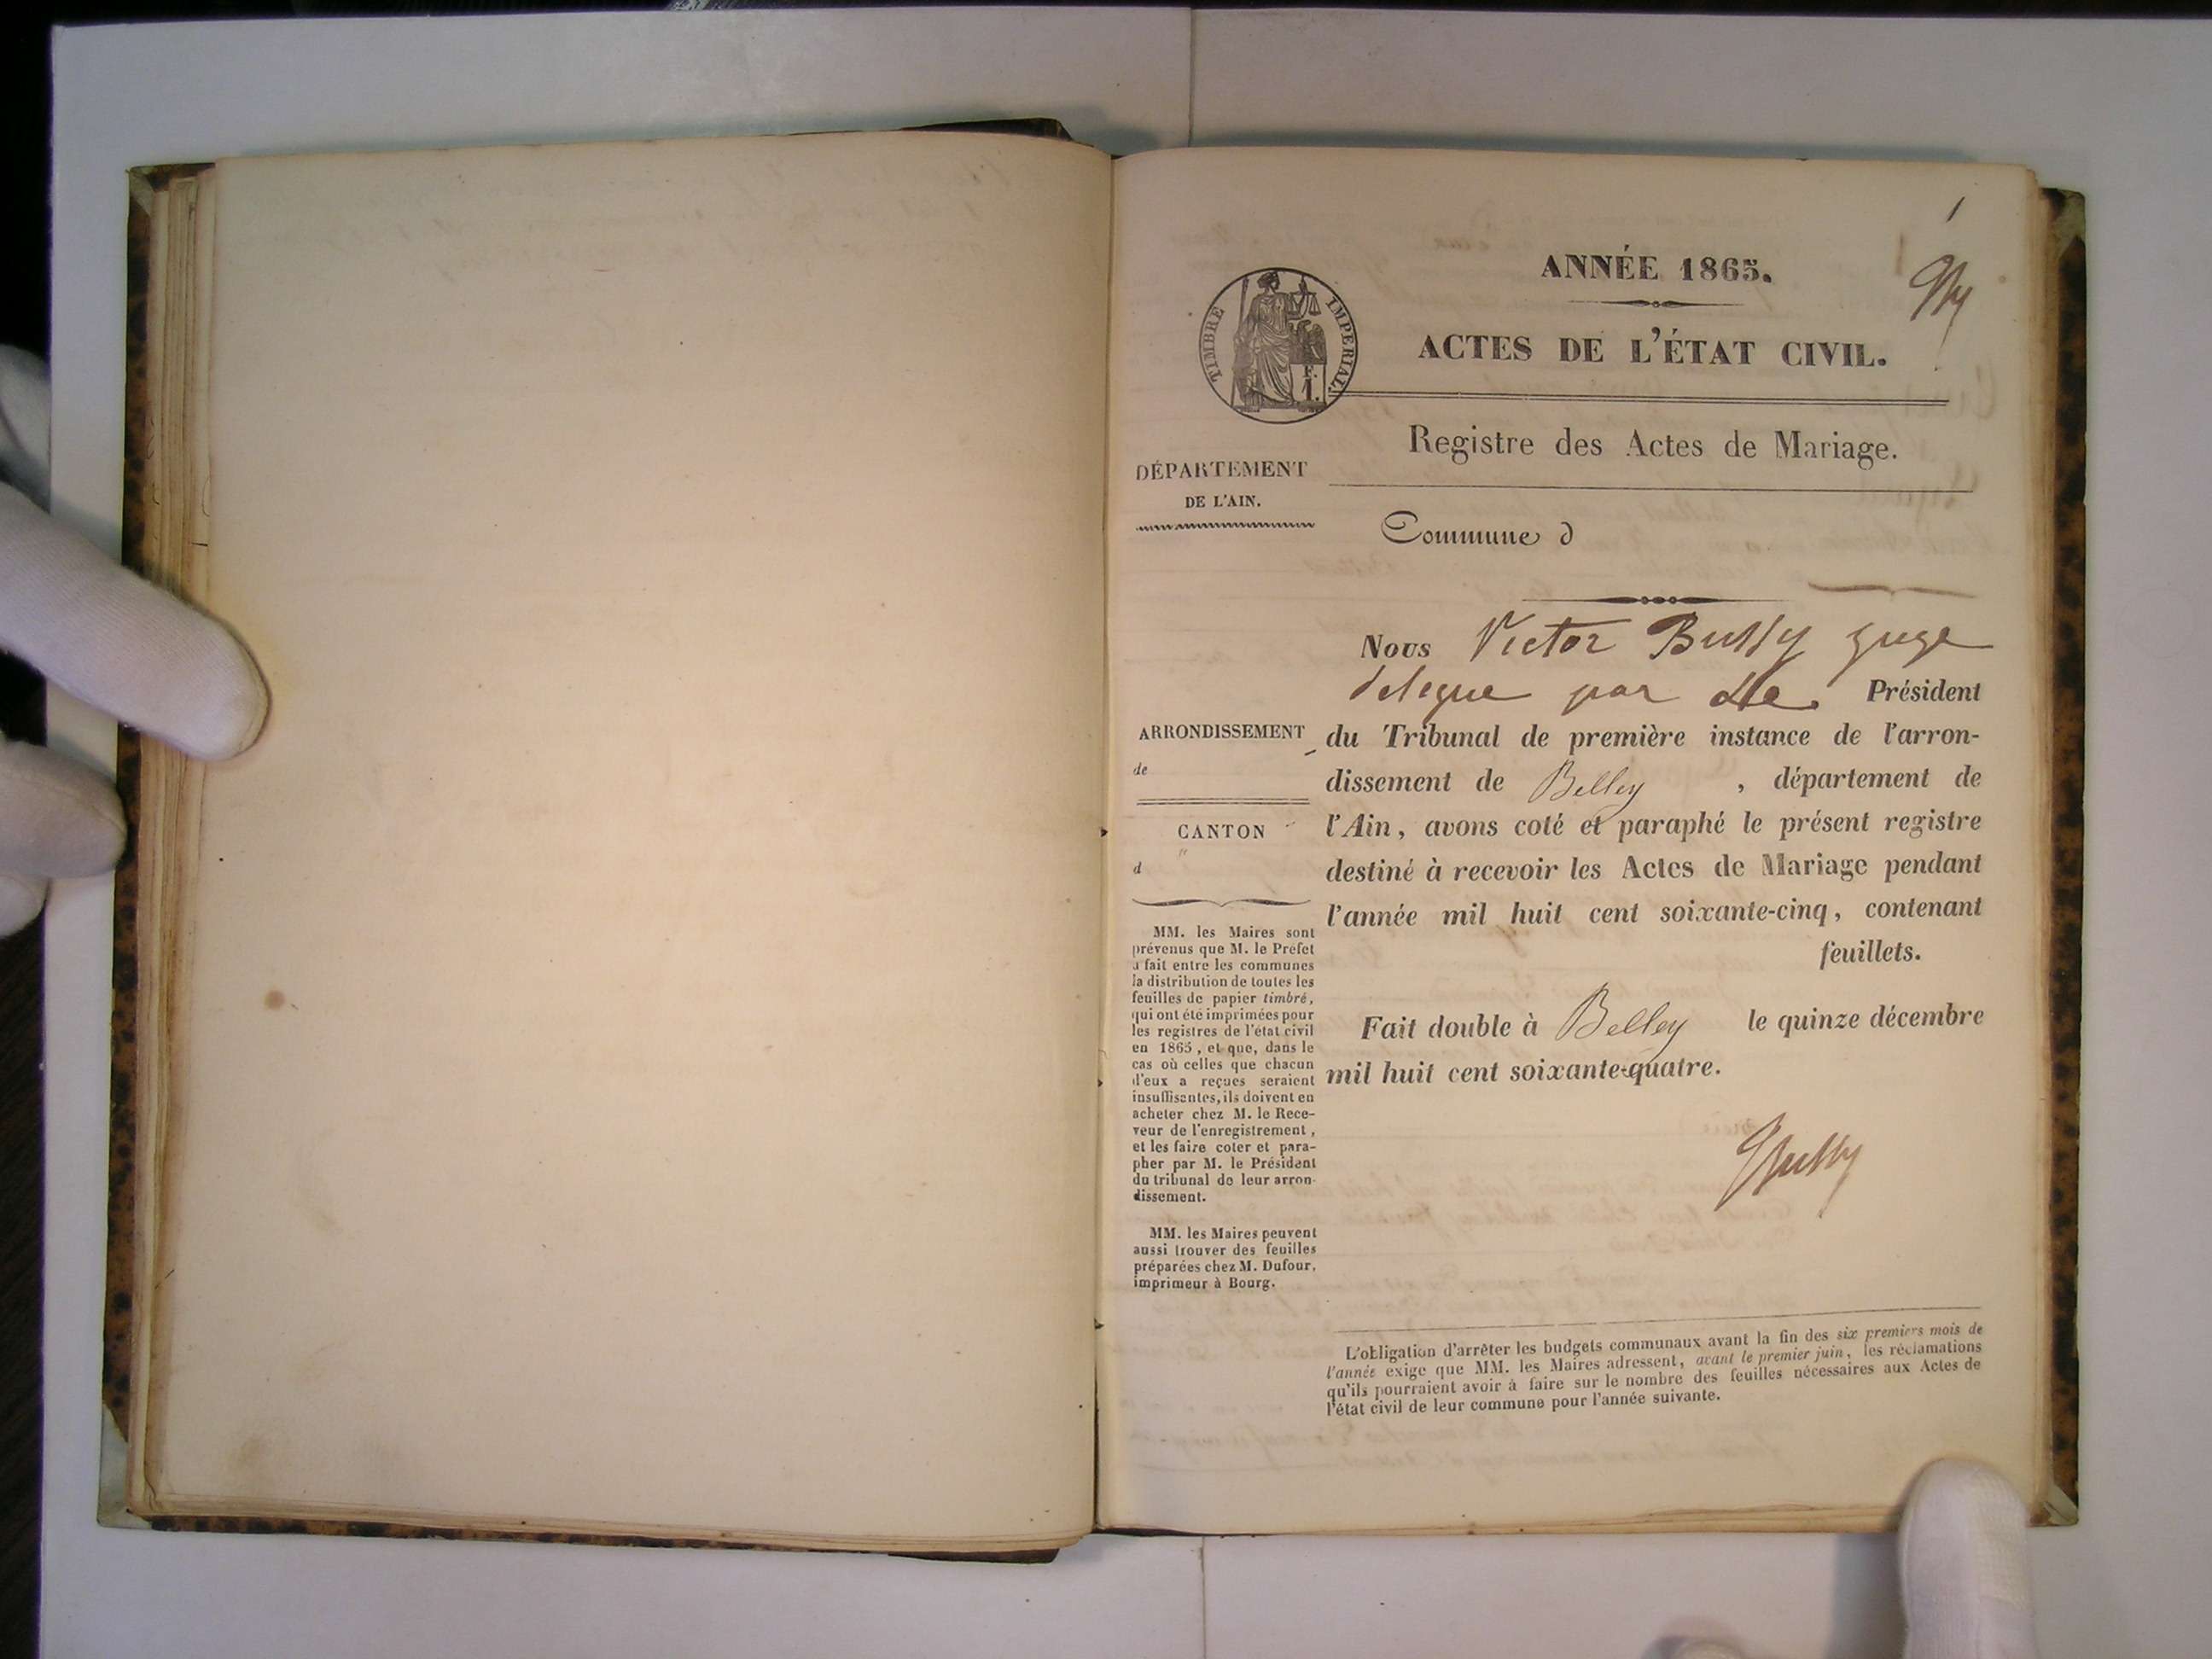 1
ANNÉE 1865.
TIMBRE IMPERIAL.
F.
1.
ACTES DE L'ÉTAT CIVIL.
Registre des Actes de Mariage.
DÉPARTEMENT
DE L'AIN.
Commune d
Nous Victor Bussy juge
delegue par Le Président
du Tribunal de première instance de l'arron-
dissement de Belley , département de
l'Ain, avons coté et paraphé le présent registre
destiné à recevoir les Actes de Mariage pendant
l'année mil huit cent soixante-cinq, contenant
feuillets.
Fait double à Belley le quinze décembre
mil huit cent soixante-quatre.
Bussy
ARRONDISSEMENT
de
CANTON
d
MM. les Maires sont
prévenus que M. le Préfet
a fait entre les communes
la distribution de toutes les
feuilles de papier timbré,
qui ont été imprimées pour
les registres de l'état civil
en 1865, et que, dans le
cas où celles que chacun
d'eux a reçues seraient
insuffisantes, ils doivent en
acheter chez M. le Rece-
veur de l'enregistrement,
et les faire coter et para-
pher par M. le Président
du tribunal de leur arron-
dissement.
MM. les Maires peuvent
aussi trouver des feuilles
préparées chez M. Dufour,
imprimeur à Bourg.
L'obligation d'arrêter les budgets communaux avant la fin des six premiers mois de
l'année exige que MM. les Maires adressent, avant le premier juin, les réclamations
qu'ils pourraient avoir à faire sur le nombre des feuilles nécessaires aux Actes de
l'état civil de leur commune pour l'année suivante.